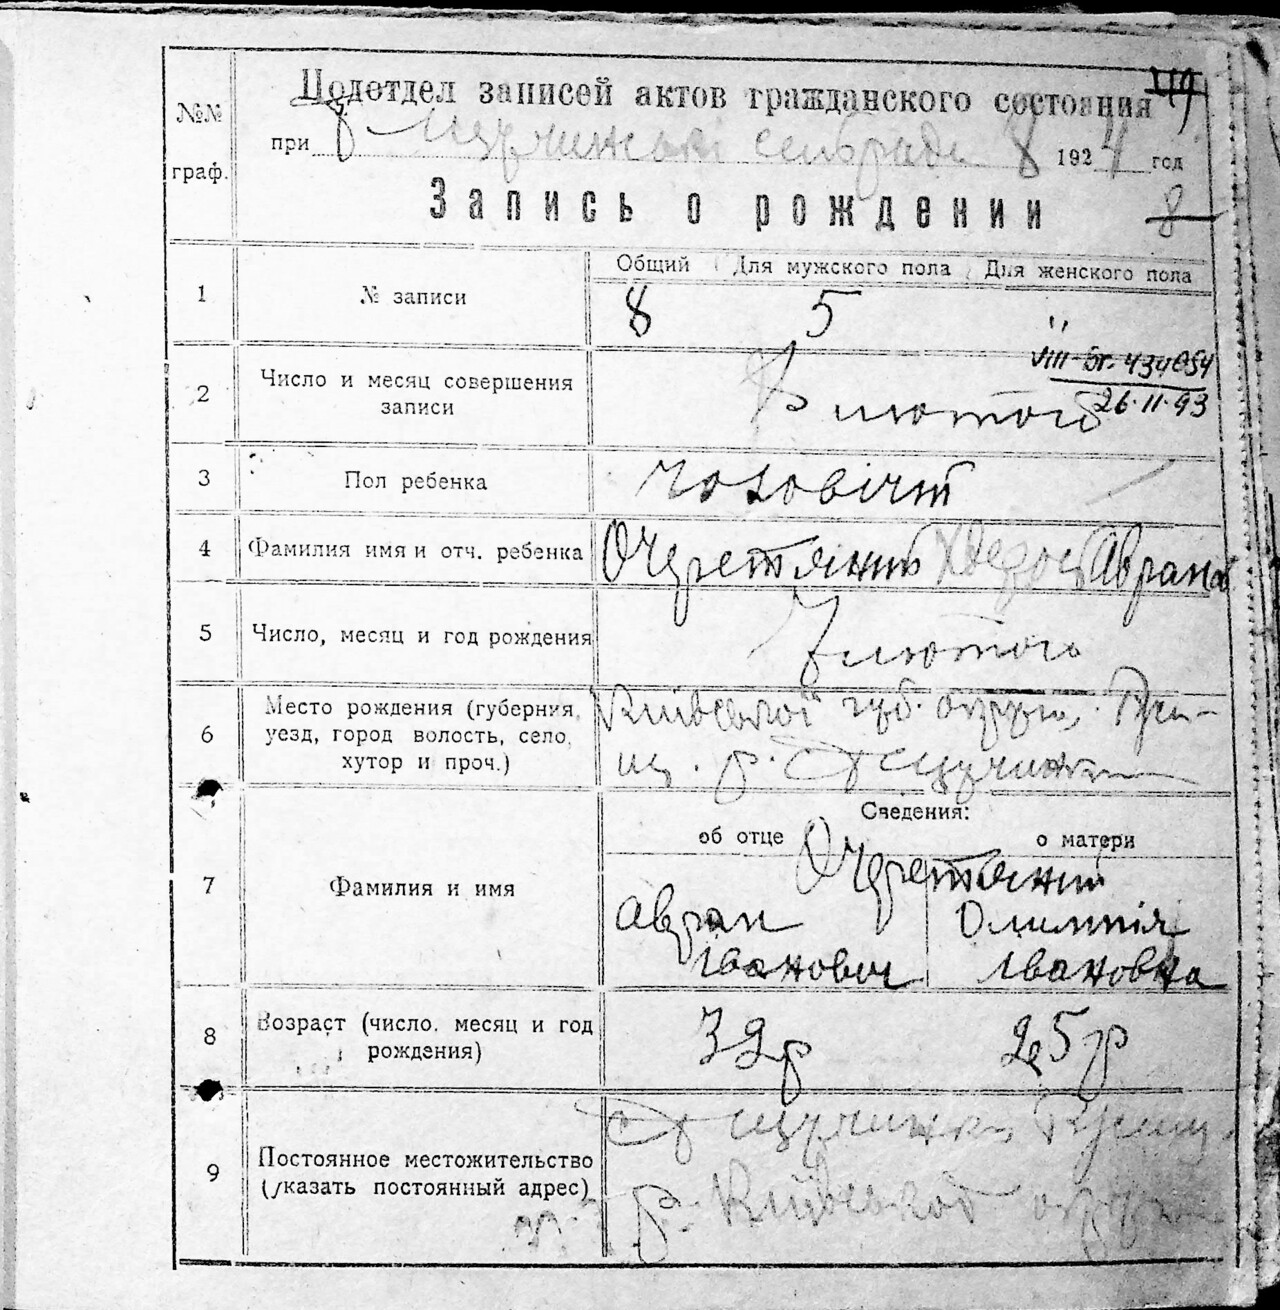 Подотдел записей актов гражданского состояния
при Щучинські сельраде 1924 год
Запись о рождении
№№ граф.
8
1 № записи
Общий Для мужского пола Для женского пола
8 5 "
26·11·43
2 Число и месяц совершения записи
8 лютого
3 Пол ребенка
чоловічт
4 Фамилия имя и отч. ребенка
Очеретяний Хведось Аврама
5 Число, месяц и год рождения
7 лютого
6 Место рождения (губерния, уезд, город волость, село, хутор и проч.)
Київської губ. округи,
р. Щучинка
Сведения:
об отце о матери
7 Фамилия и имя
Очеретяний
Аврам Олимпія
Іванович Івановна
8 Возраст (число, месяц и год рождения)
32 р 25 р
9 Постоянное местожительство (указать постоянный адрес)
Щучинка
р. Київської округи